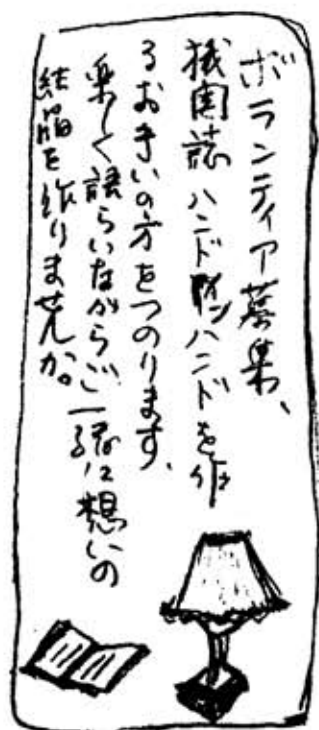 ボランティア募集、
機関誌ハンドインハンドを作
るお手いの方をつのります、
楽しく語らいながらご一緒に想いの
結晶を作りませんか。